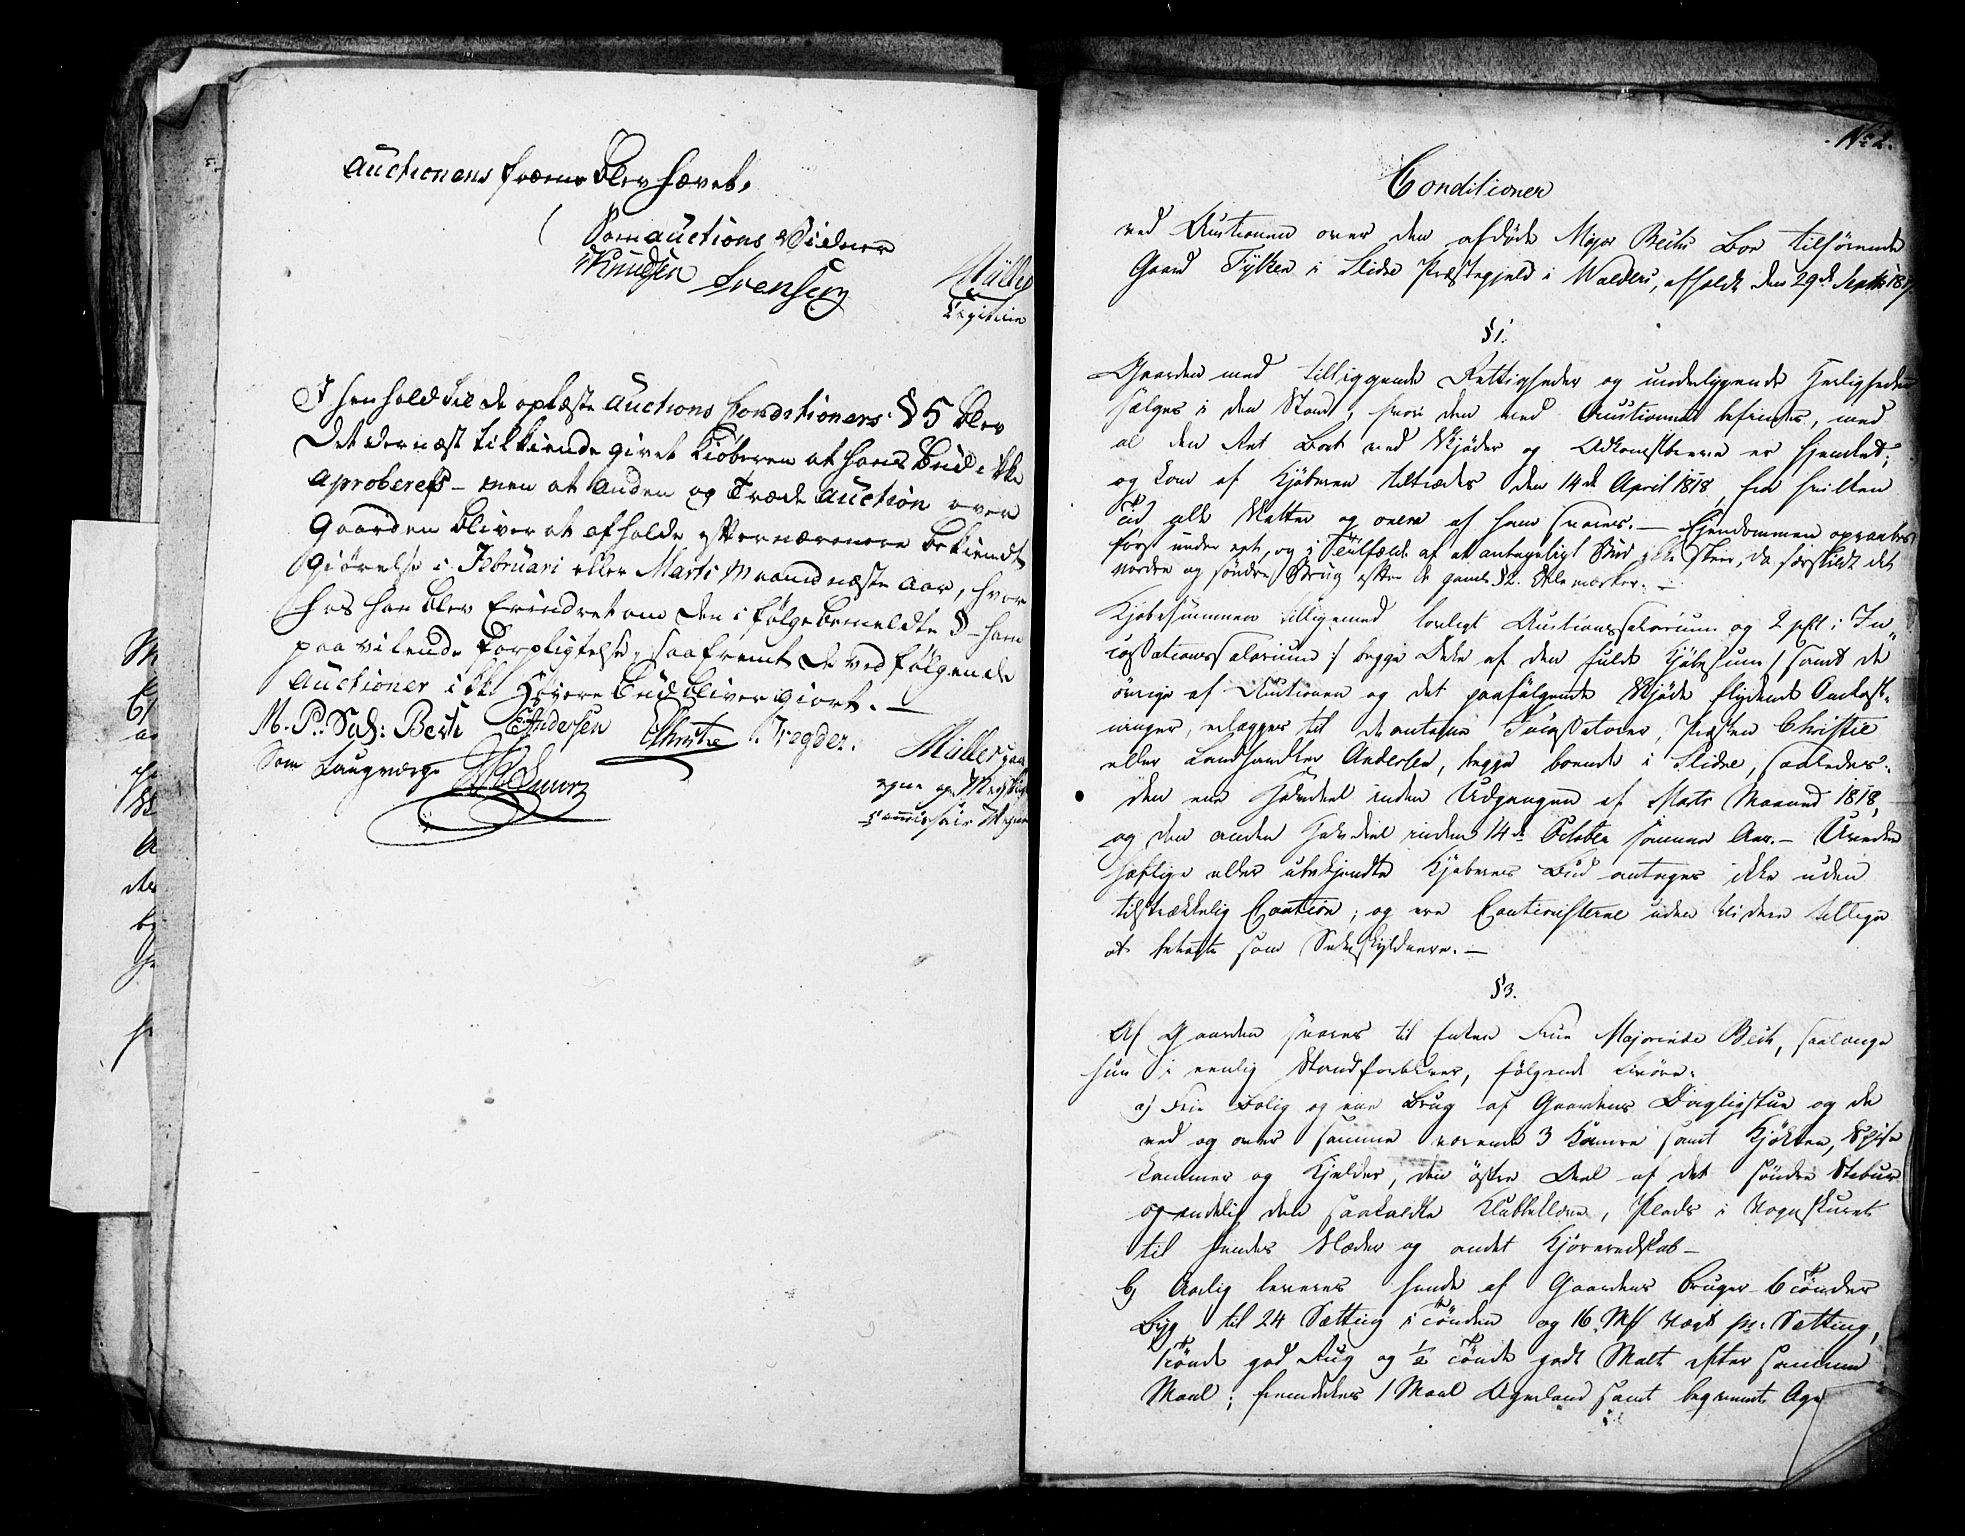 Auctionens fræmr blev hævet.
Som auctions Vidner
Knudsen Svensen
Müller
I henhold til de oplæste Auctions Conditioners § 5 blev
det dernæst tilkiende givet Kiøberen at hans bud ikke
aproberes – men at anden og Træde Auction over
Gaarden bliver at afholde efter nærmere bekiendt
giørelse i Februari eller Marti Maaned næste Aar, hvor
hos han blev Erindret om den i følge bemeldte § – ham
paa vilende Forpligtelse, saafremt de ved følgende
Auctioner ikke Høyere bud bliver giort. –
M. P. Sal: Bech Andersen Christie Müller paa
Som Laugværge
egne og
No 2.
Conditioner
ved Auctionen over den afdøde Major Bechs Boe tilhørende
Gaard Fylken i Slidre Præstegjeld i Walders, afholdt den 29de Septbr 181
§ 1.
Gaarden med tilliggende Rettigheder og underliggende Herligheder
sælges i den Stand, hvori den ved Auctionen befindes, med
al den Ret Boet ved Skjøder og Adkomstbreve er hjemlet;
og kan af Kjøberen tiltrædes den 14de April 1818, fra hvilken
Tid alle Skatter og onera af ham svares. – Ejendommen opraabes
først under eet, og i Tilfælde af at antageligt Bud ikke skeer, da særskildt det
nordre og søndre Brug efter de gamle § 2. Dele mærker. –
Kjøbesummen tilligemed lovligt Auctionssalarium og 2 pCt i In-
cassationssalarium /: begge Dele af den fulde Kjøbesum :/ samt de
øvrige af Auctionen og det paafølgende Skjøde flydende Omkost-
ninger, erlægges til de antagne Incassatorer, Præsten Christie
eller Landhandler Andersen, begge boende i Slidre, saaledes:
den ene Halvdeel inden Udgangen af Marts Maaned 1818,
og den anden Halvdeel inden 14de October samme Aar. – Uveder
hæftige eller ubekjendte Kjøberes Bud antages ikke uden
tilstrækkelig Caution; og ere Cautionisterne uden videre tillige
at betragte som Selvskyldnere. –
§ 3.
Af Gaarden svares til Enken Frue Majorinde Bech, saalænge
hun i eenlig Stand forbliver, følgende Livøre:
a) Frie Bolig og ene Brug af Gaardens Dagligstue og de
ved og over samme værende 3 Kamre samt Kjøkken, Spise
kammer og Kjelder, den østre Deel af det søndre Stabur
og endelig den saakaldte Klubbelløe, Plads i Vognskuret
til hendes Slæder og andet Kjøreredskab –
b) Aarlig leveres hende af Gaardens Bruger 6 Tønder
Byg til 24 Sætting i Tønden og 16 Mk Vægt pr: Sætting,
1 Tønde god Rug og ½ Tønde godt Malt efter samme
Maal; fremdeles 1 Maal Agerland samt beqvemt Age